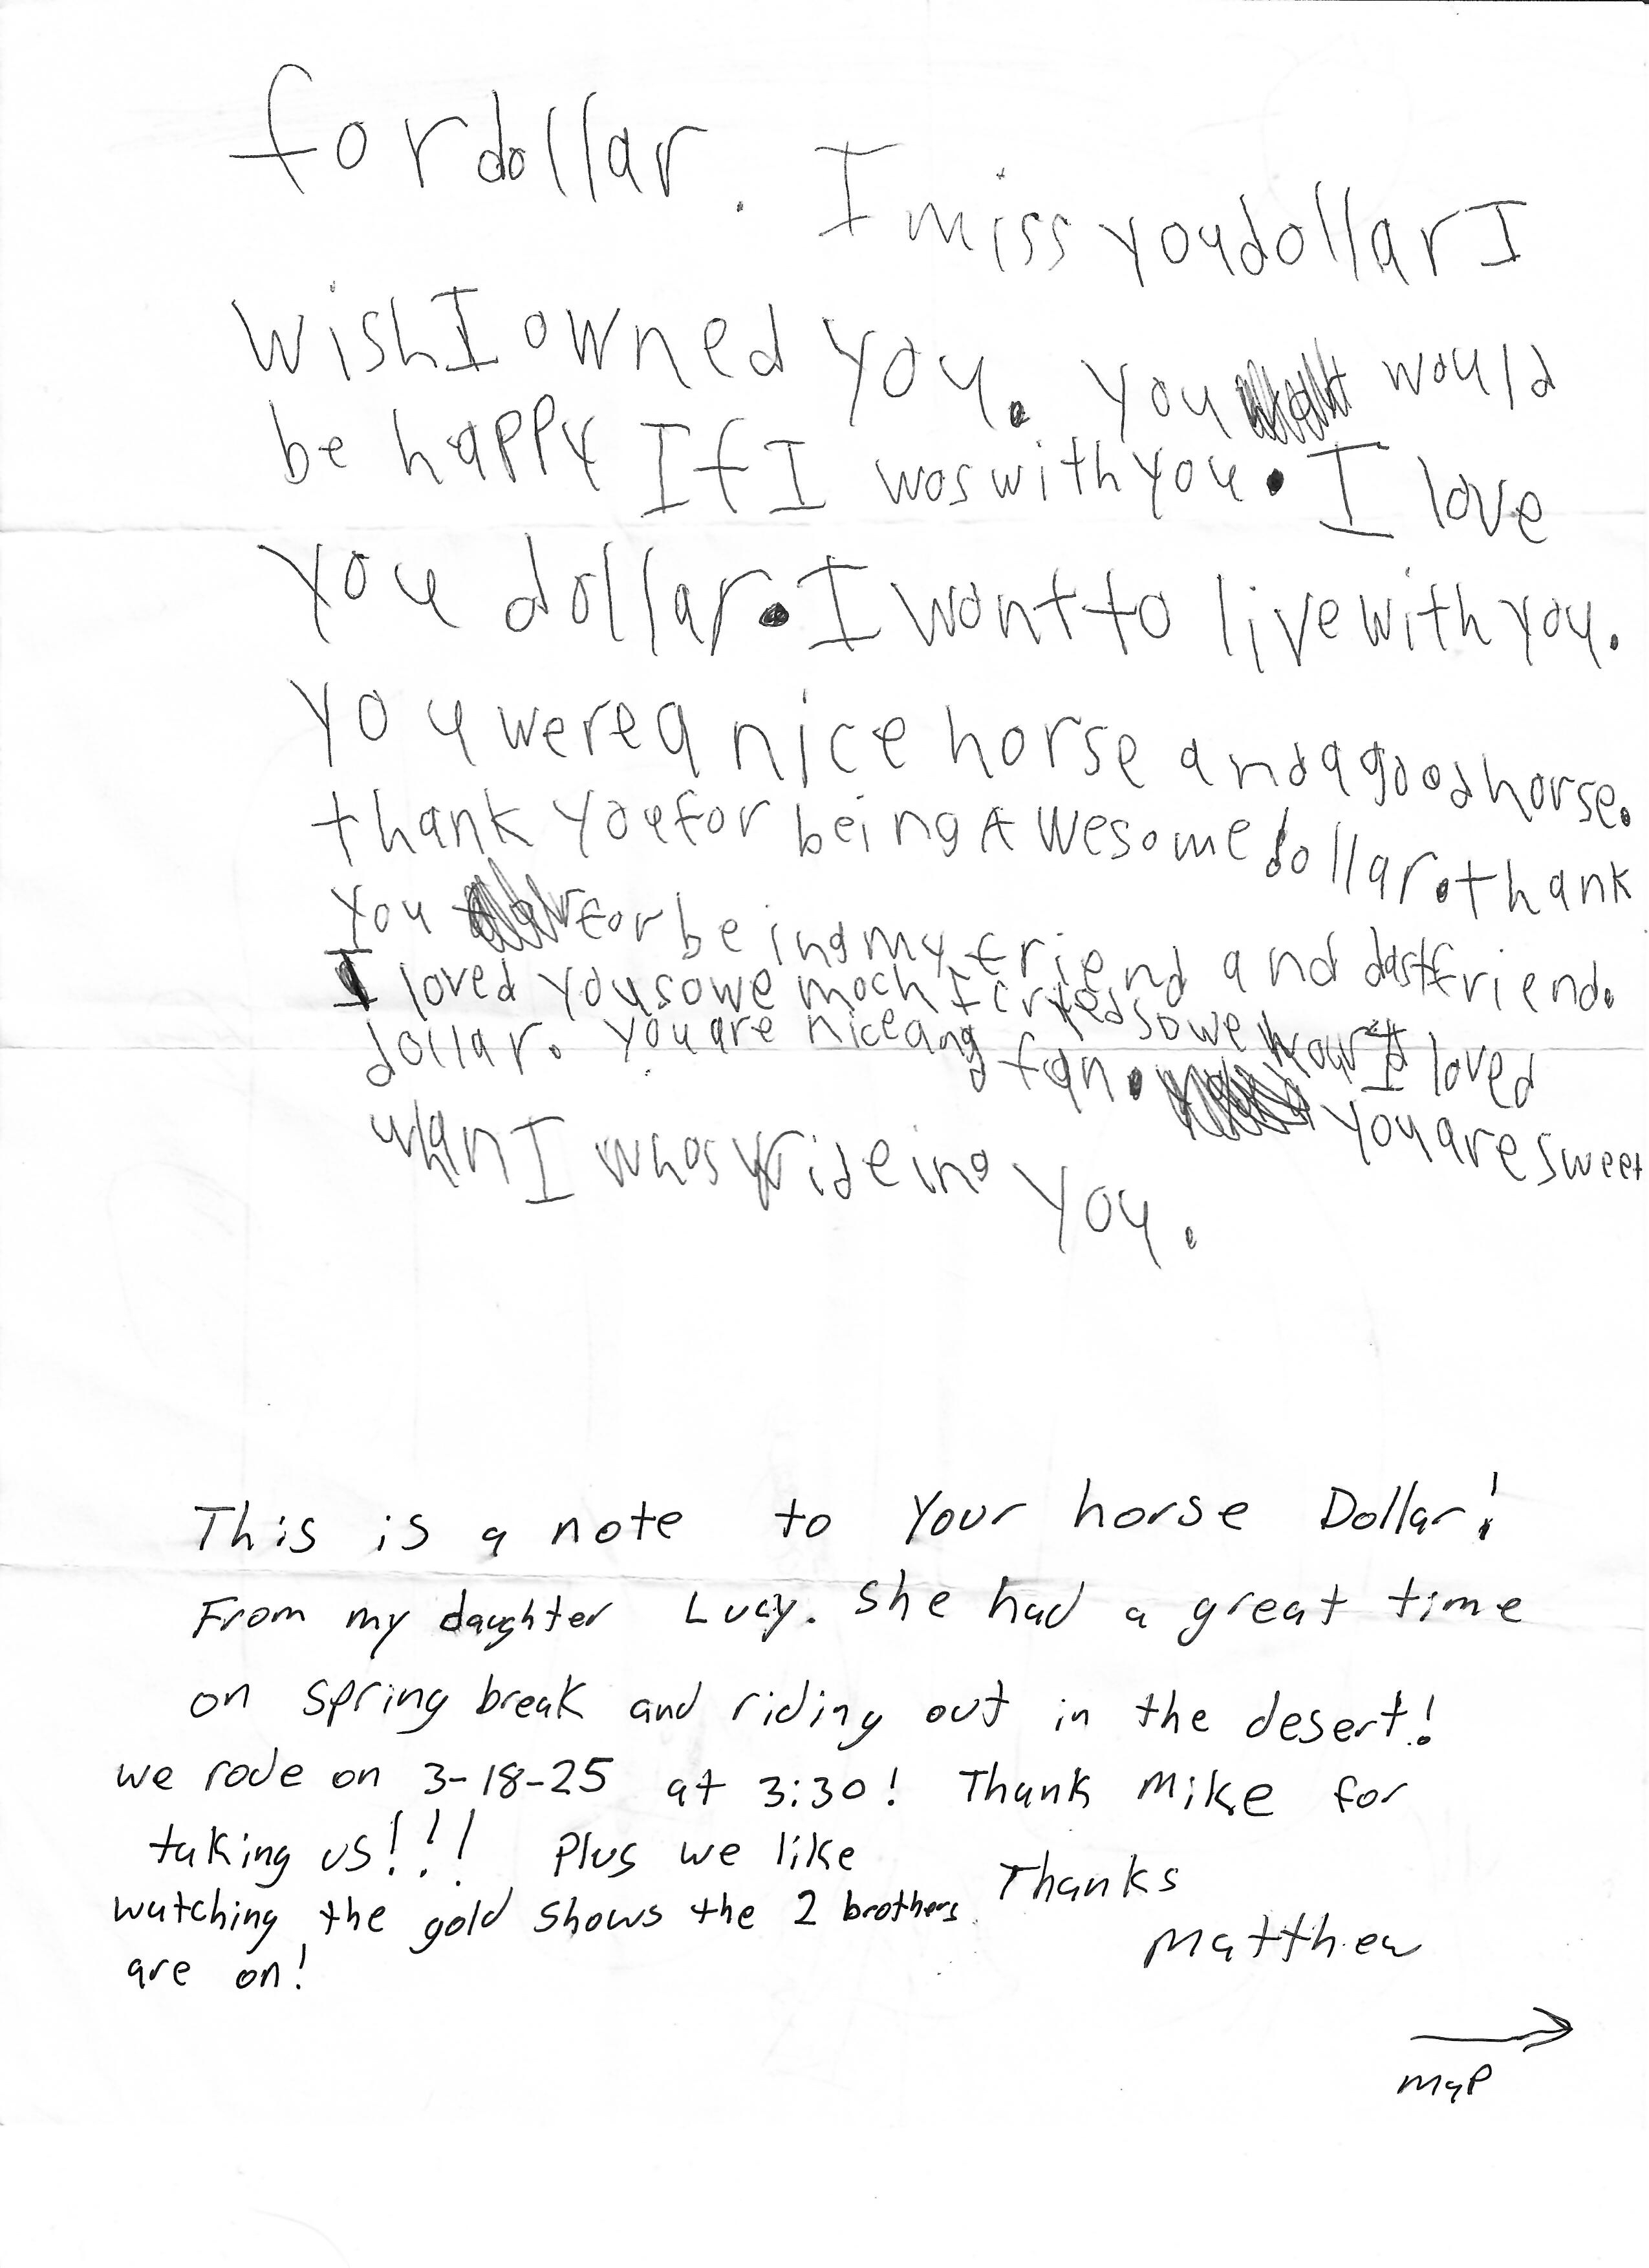 for dollar. I miss you dollar I
wish I owned you. you would
be happy If I was with you. I love
you dollar. I want to live with you.
you were a nice horse and a good horse.
thank you for being Awesome dollar. thank
you for being my friend and dastfriend.
I loved you sowe moch I cryed sowe
dollar. you are nice and fan. I loved
you are sweet
whan I whas rideing you.
This is a note to Your horse Dollar!
From my daughter Lucy. She had a great time
on spring break and riding out in the desert!
we rode on 3-18-25 at 3:30! Thank Mike for
taking us!!! Plus we like
watching the gold shows the 2 brothers
are on!
Thanks
Matthew
→
MaP